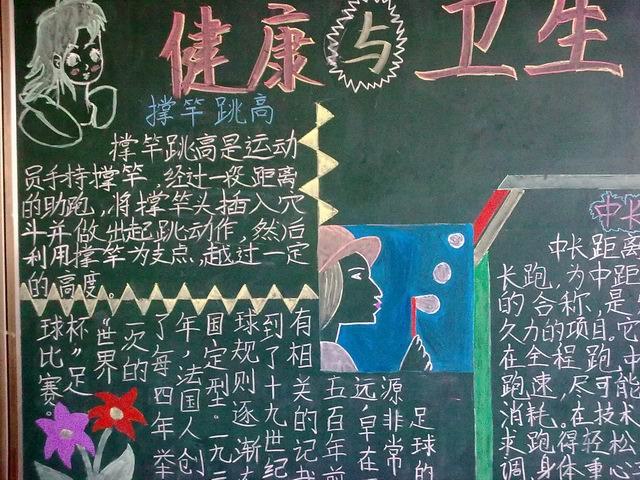 健康与卫生
撑竿跳高
撑竿跳高是运动
员手持撑竿，经过一段距离
的助跑，将撑竿头插入穴
斗并做出起跳动作，然后
利用撑竿为支点，越过一定
的高度。
足球的
源非常
远，早在
五百年前
有相关的记载
到了十九世纪
球规则逐渐
国定型。一九
年，法国人创
了每四年举
一次的
“世界
杯”足
球比赛。
中长
中长距离
长跑，为中距
的合称，是
久力的项目。它
在全程跑中
跑速，尽可能
消耗。在技术
来跑得轻松
调，身体重心